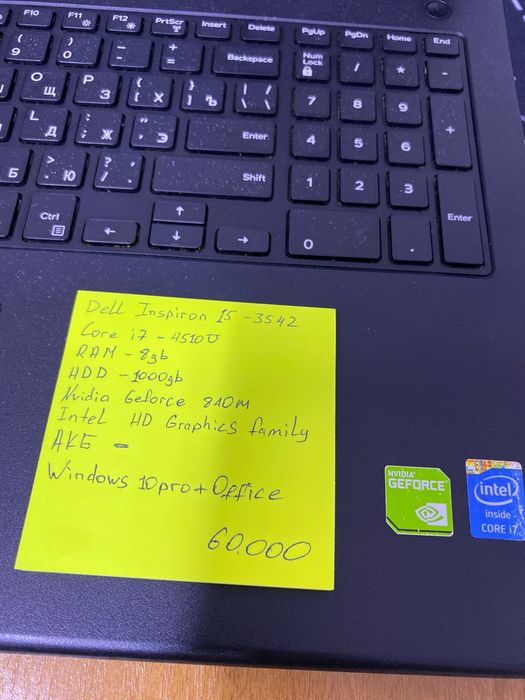 F10 F11 F12 PrtScr Insert Delete PgUp PgDn Home End
( 9 ) 0 _ - + = Backspace Num Lock / * -
O Щ P З { [ Х } ] Ъ | \ 7 8 9 +
L Д : ; Ж " ' Э Enter 4 5 6
Б > . Ю ? / Shift 1 2 3 Enter
Ctrl ← ↑ ↓ → 0 .
Dell Inspiron 15 - 3542
Core i7 - 4510U
RAM - 8gb
HDD - 1000gb
Nvidia Geforce 840M
Intel HD Graphics family
АКБ -
Windows 10pro + Office
60.000
NVIDIA
GEFORCE
intel
inside
CORE i7